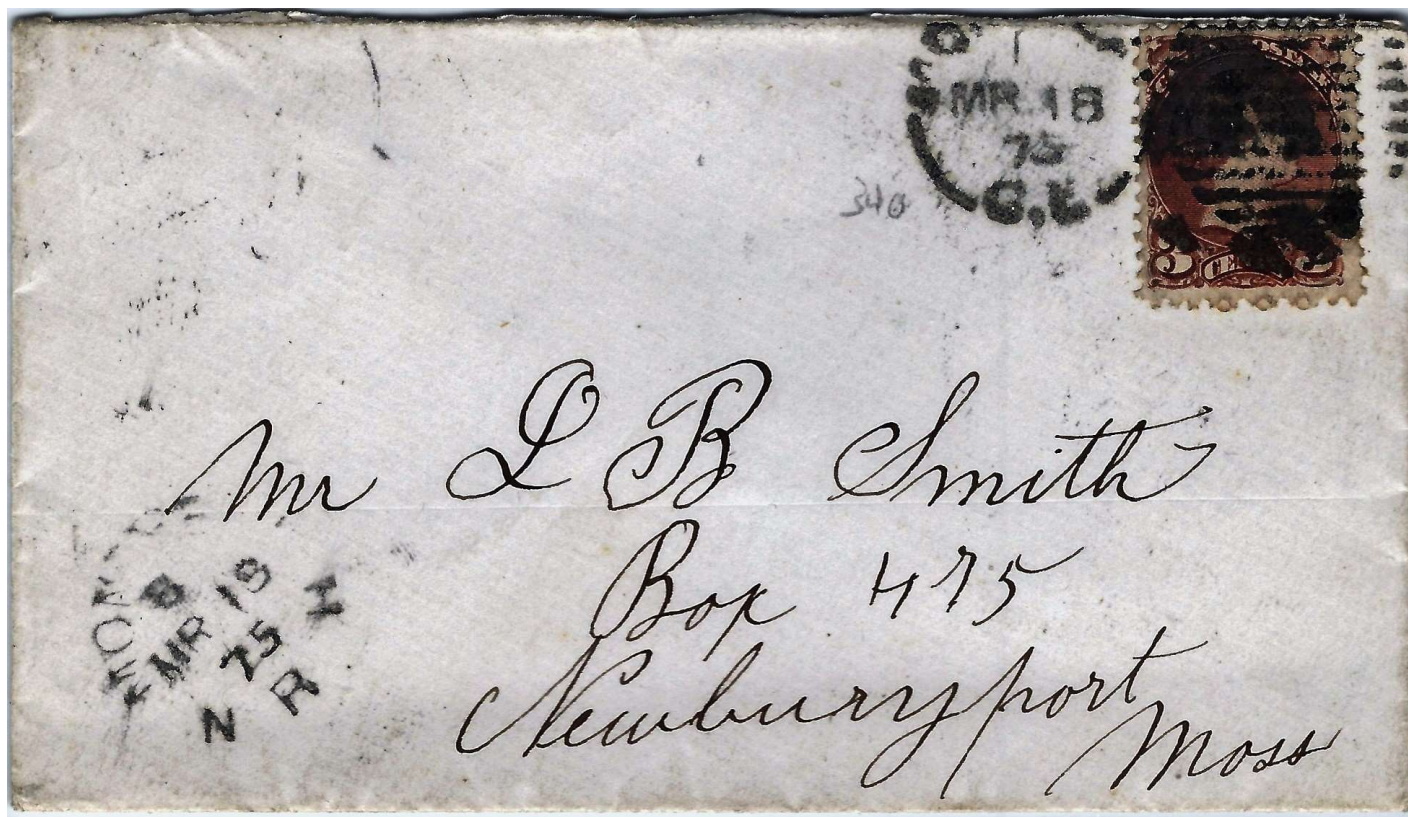 MR 18
75
C.E
340
3 CE
Mr L B Smith
Box 475
Newburyport
Mass
MR 19
75
N R H